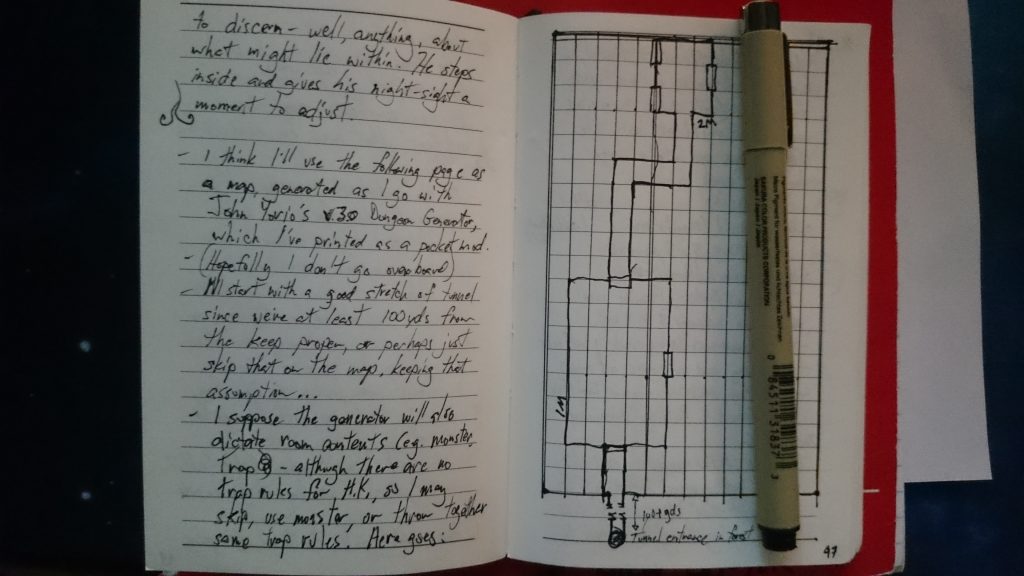 to discern - well, anything, about
what might lie within. He steps
inside and gives his night-sight a
moment to adjust.
- I think I'll use the following page as
a map, generated as I go with
John Yorio's v30 Dungeon Generator,
which I've printed as a pocketmod.
- (Hopefully I don't go overboard)
- I'll start with a good stretch of tunnel
since we're at least 100 yds from
the keep proper, or perhaps just
skip that on the map, keeping that
assumption...
- I suppose the generator will also
dictate room contents (eg. monster,
trap) - although there are no
trap rules for H.K., so I may
skip, use monster, or throw together
some trap rules. Here goes:
2M
1M
100+yds
Tunnel entrance in forest
47
SAKURA COLOR PRODUCTS CORPORATION
0 84511 31837 3